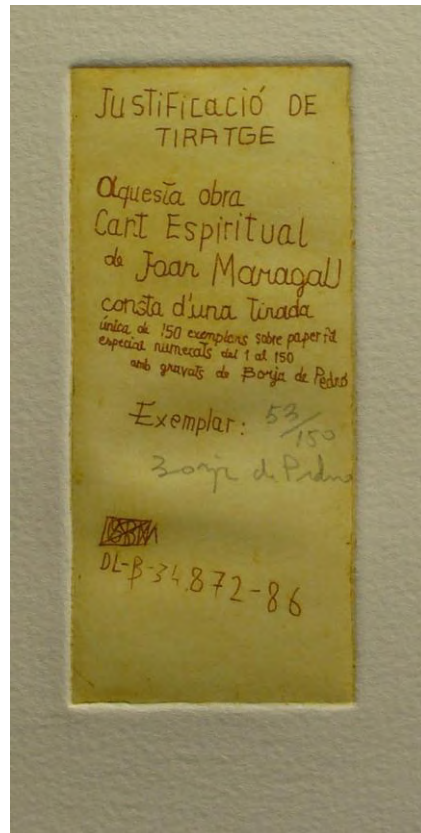 JUSTIFICACIÓ DE
TIRATGE
Aquesta obra
Cant Espiritual
de Joan Maragall
consta d'una tirada
única de 150 exemplars sobre paper fil
especial numerats del 1 al 150
amb gravats de Borja de Pedro
Exemplar: 53/150
Borja de Pedro
DL-B-34.872-86